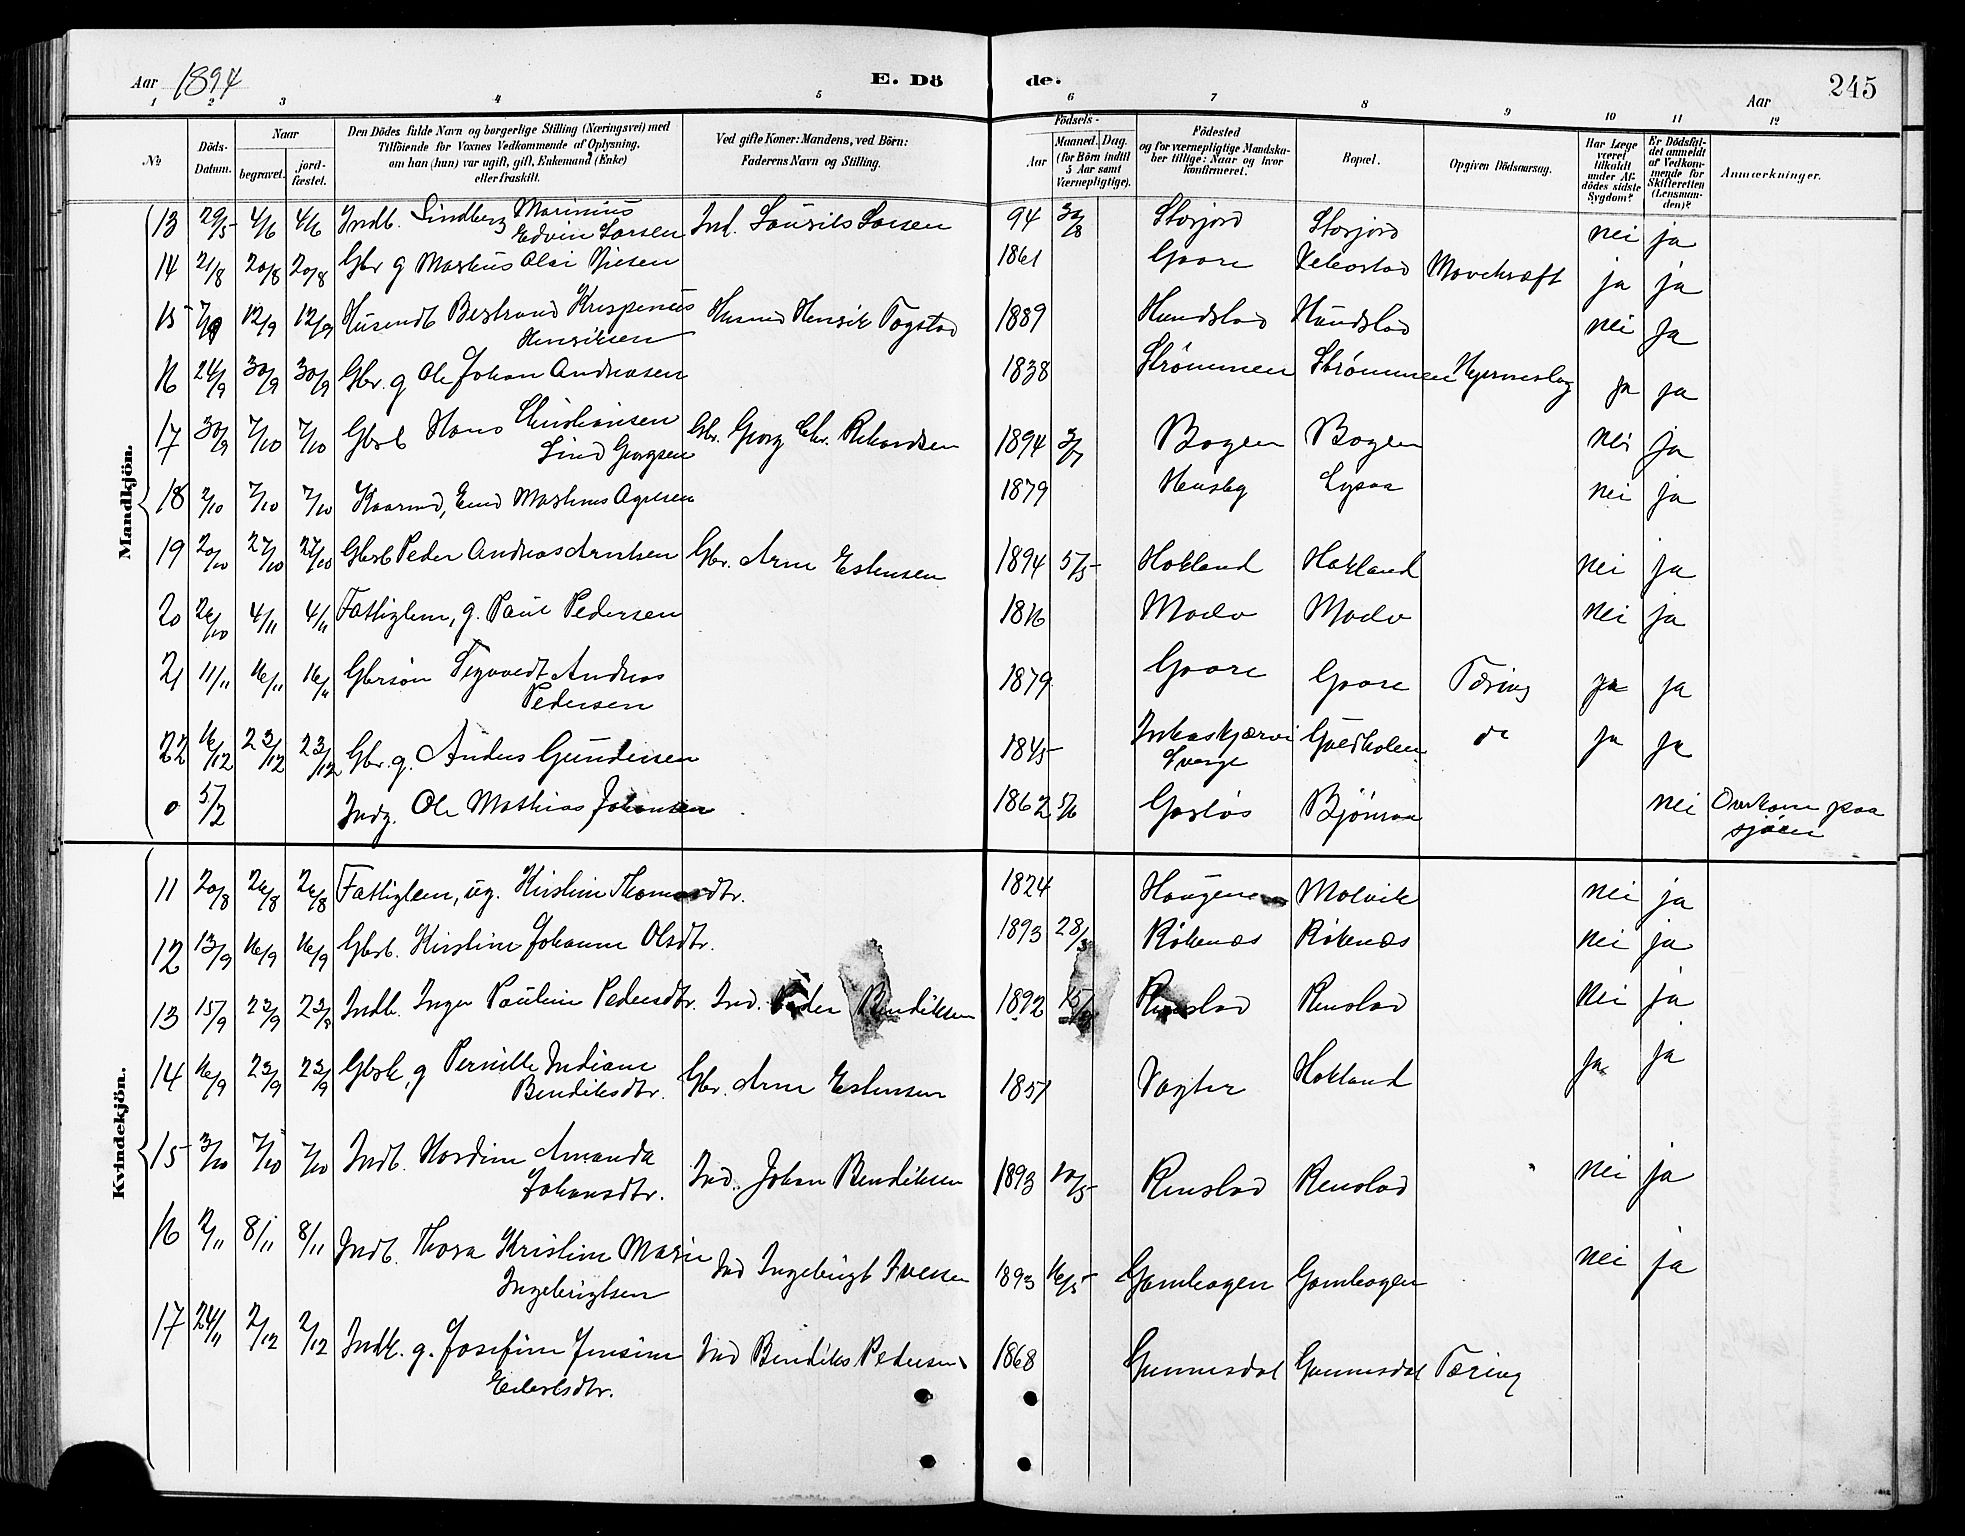 Aar 1894 E. Döde. Aar 245
1 2 3 4 5 6 7 8 9 10 11 12
№
Döds-Datum.
Naar
begravet.
jord-fæstet.
Den Dödes fulde Navn og borgerlige Stilling (Næringsvei) med
Tilföiende for Voxnes Vedkommende af Oplysning,
om han (hun) var ugift, gift, Enkemand (Enke)
eller fraskilt.
Ved gifte Koner: Mandens, ved Börn:
Faderens Navn og Stilling.
Födsels-
Aar
Maaned. Dag.
(for Börn indtil
5 Aar samt
Værnepligtige).
Födested
og for værnepligtige Mandska-
ber tillige: Naar og hvor
konfirmeret.
Bopæl.
Opgiven Dödsaarsag.
Har Læge
været
tilkaldt
under Af-
dödes sidste
Sygdom?
Er Dödsfal-
det anmeldt
af Vedkom-
mende for
Skifteretten
(Lensman-
den)?
Anmærkninger.
Mandkjön.
13 29/5 4/6 4/6 Indb. Lindberg Marinius Ind. Laurits Larsen 94 Storjord Storjord nei ja
Edvin Larsen
14 21/8 20/8 20/8 Gbr g Markus Olai 1861 Gaare Mavekræft ja ja
15 12/9 12/9 Bertrand Krispinus Henrik Tøgstad 1889 Hundstad Hundstad nei ja
Henriksen
16 24/9 30/9 30/9 Gbr. g Ole Johan Andreasen 1838 Strømmen Strømmen Hjerneslag ja ja
17 30/9 7/10 7/10 Gbrb Hans Christiansen Gbr. Georg Chr. Rikardsen 1894 Bogen Bogen nei ja
Lind Georgsen
18 2/10 7/10 7/10 Martinus 1879 nei ja
19 20/10 27/10 27/10 Gbrb Peder Andreas Arntsen Gbr. Arne Estensen 1894 5/5 Hokland Hokland nei ja
20 26/10 4/11 4/11 Fattiglem, g. Paul Pedersen 1816 nei ja
21 11/11 16/11 16/11 Gbrsön Sigvardt Andreas 1879 Gaare Gaare Tæring ja ja
Pedersen
22 16/12 23/12 23/12 Gbr. g. Anders Gundersen 1845 do ja ja
0 5/2 Indg. Ole Mathias Johansen 1862 5/6 nei Omkom paa
sjøen
Kvindekjön.
11 20/8 26/8 26/8 Fattiglem, ug. Kirstine Thomasdtr. 1824 Haugene Molvik nei ja
12 13/9 16/9 16/9 Gbrb. Kirstine Johanne Olsdtr. 1893 28/3 Røkenæs Røkenæs nei ja
13 15/9 23/9 23/9 Indb. Inger Pauline Pedersdtr. Ind. Peder Bendiksen 1892 Renstad Renstad nei ja
14 16/9 23/9 23/9 Gbrk, g Pernille Indiane Gbr. Arne Estensen 1851 Vagter Hokland ja ja
Bendiksdtr.
15 3/10 7/10 7/10 Indb. Hardine Amanda Ind. Johan Bendiksen 1893 Renstad Renstad nei ja
Johansdtr.
16 2/11 8/11 8/11 Indb. Thora Kristine Marie Ind Ingebrigt Iversen 1893 16/5 Gambogen Gambogen nei ja
Ingebrigtsen
17 24/11 2/12 2/12 Indk. g. Josefine Jensine Ind Bendiks Pedersen 1868 Gunnesdal Gunnesdal Tæring
Edertsdtr.